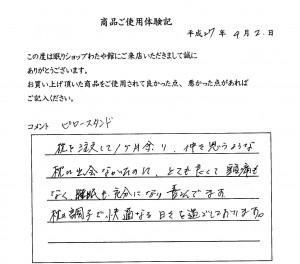 商品ご使用体験記
平成27年4月2日
この度は眠りショップわたや館にご来店いただきまして誠に
ありがとうございます。
お買い上げ頂いた商品をご使用されて良かった点、悪かった点があれば
ご記入ください。
コメント ピロースタンド
枕を注文して1ヶ月余り、仲々思うような
枕に出会なかったのに、とても良くて頭痛も
なく、睡眠も充分になり喜んでます
枕の調子で快適なる日々を過ごしております。